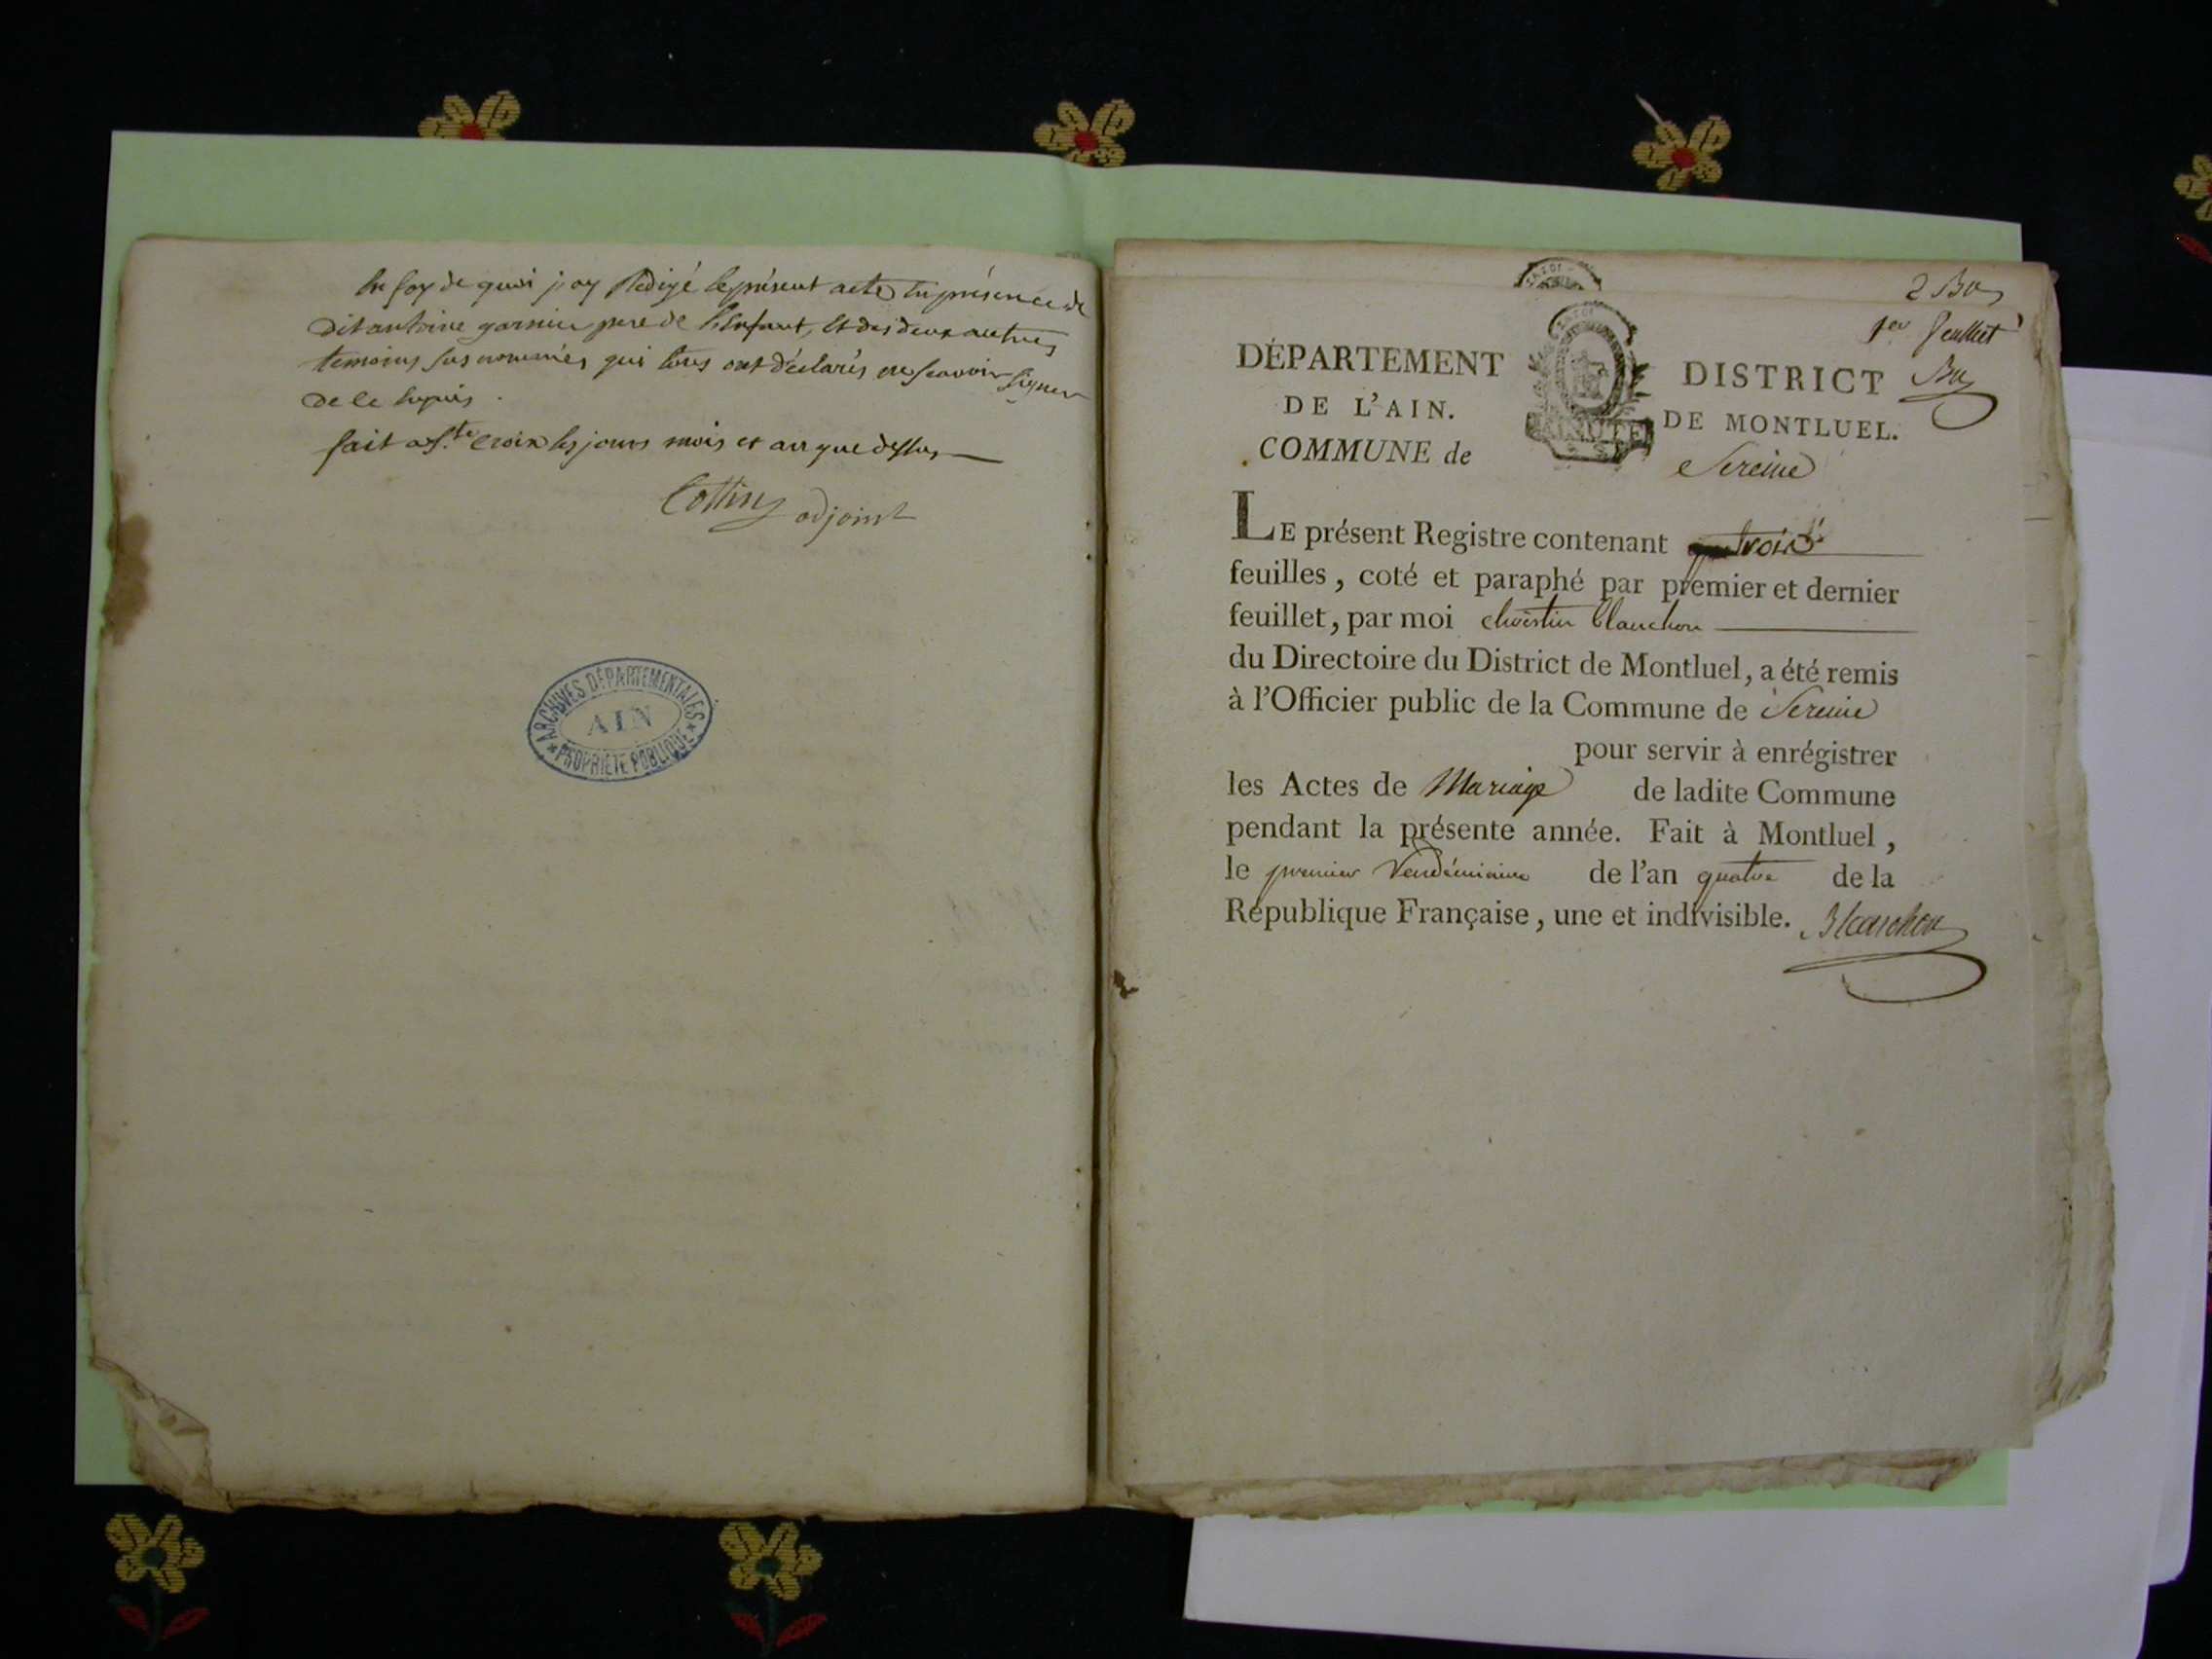 En foy de quoi j'ay Rédigé le présent acte En présence de
dit antoine garnier pere de l'Enfant, Et des deux autres
temoins sus nommés qui tous ont déclarés ne scavoir signer
de ce Enquis .
fait a Ste Croix les jours mois et an que dessus
Cottin adjoint
ARCHIVES DÉPARTEMENTALES
AIN
PROPRIÉTÉ PUBLIQUE
1er feuillet
DÉPARTEMENT DISTRICT
DE L'AIN. DE MONTLUEL.
COMMUNE de Sereine
LE présent Registre contenant trois
feuilles, coté et paraphé par premier et dernier
feuillet, par moi christin blanchon
du Directoire du District de Montluel, a été remis
à l'Officier public de la Commune de Sereine
pour servir à enrégistrer
les Actes de Mariage de ladite Commune
pendant la présente année. Fait à Montluel,
le premier Vendémiaire de l'an quatre de la
République Française, une et indivisible. Blanchon